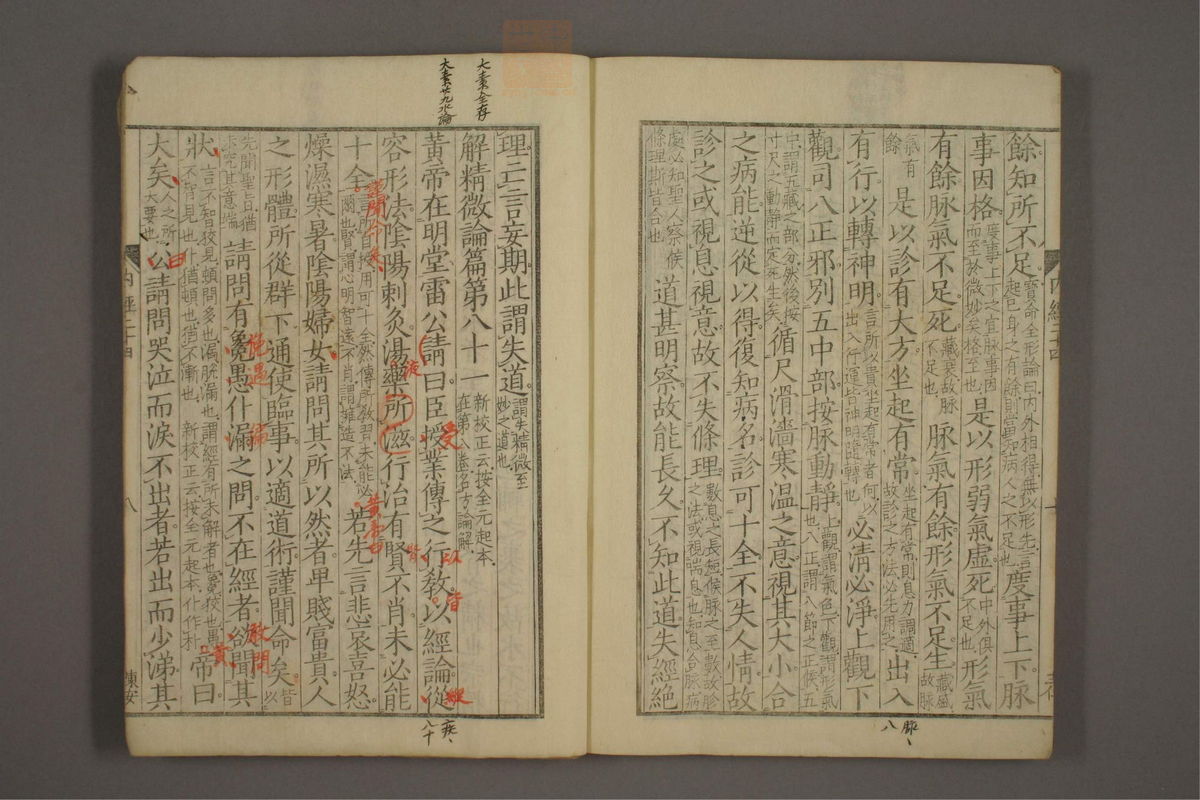 餘知所不足寶命全形論曰內外相得無以形先言起己身之有餘則當知病人之不足也度事上下脉
事因格度事上下之宜脉事因而至於微妙矣格至也是以形弱氣虛死中外俱不足也形氣
有餘脉氣不足死藏衰故脉不足也脉氣有餘形氣不足生藏盛故脉
氣有餘是以診有大方坐起有常坐起有常則息力調適故診之方法必先用之出入
有行以轉神明言所以貴坐起有常者何以出入行運皆神明隨轉也必清必淨上觀下
觀司八正邪別五中部按脉動靜上觀謂氣色下觀謂形氣也八正謂八節之正候五
中謂五藏之部分然後按寸尺之動靜而定死生矣循尺滑濇寒溫之意視其大小合
之病能逆從以得復知病名診可十全不失人情故
診之或視息視意故不失條理數息之長短候脉之至數故形之法或視喘息也知息合脉病
處必知聖人察候條理斯皆合也道甚明察故能長久不知此道失經絕
理亡言妄期此謂失道謂失精微至妙之道也
解精微論篇第八十一新校正云按全元起本在第八卷名方論解
黃帝在明堂雷公請曰臣授業傳之行教以經論從
容形法陰陽刺灸湯藥所滋行治有賢不肖未必能
十全言所自按用可十全然傳所教習未能必爾也賢謂心明智遠不肖謂擁造不法若先言悲哀喜怒
燥濕寒暑陰陽婦女請問其所以然者卑賤富貴人
之形體所從群下通使臨事以適道術謹聞命矣皆以
先聞聖旨猶未究其意端請問有毚愚仆漏之問不在經者欲聞其
狀言不智狡見頓問多也漏脫漏也謂經有所未解者也毚狡也愚不智見也仆猶頓也猶不漸也新校正云按全元起本仆作朴帝曰
大矣人之所大要也公請問哭泣而淚不出者若出而少涕其
內經二十四
八
內經二十四
大素全存
大素廿九水論
受
以
皆
經
液
謹聞命矣
黃帝曰
曰
黃
教問
疾
八十
脉
八